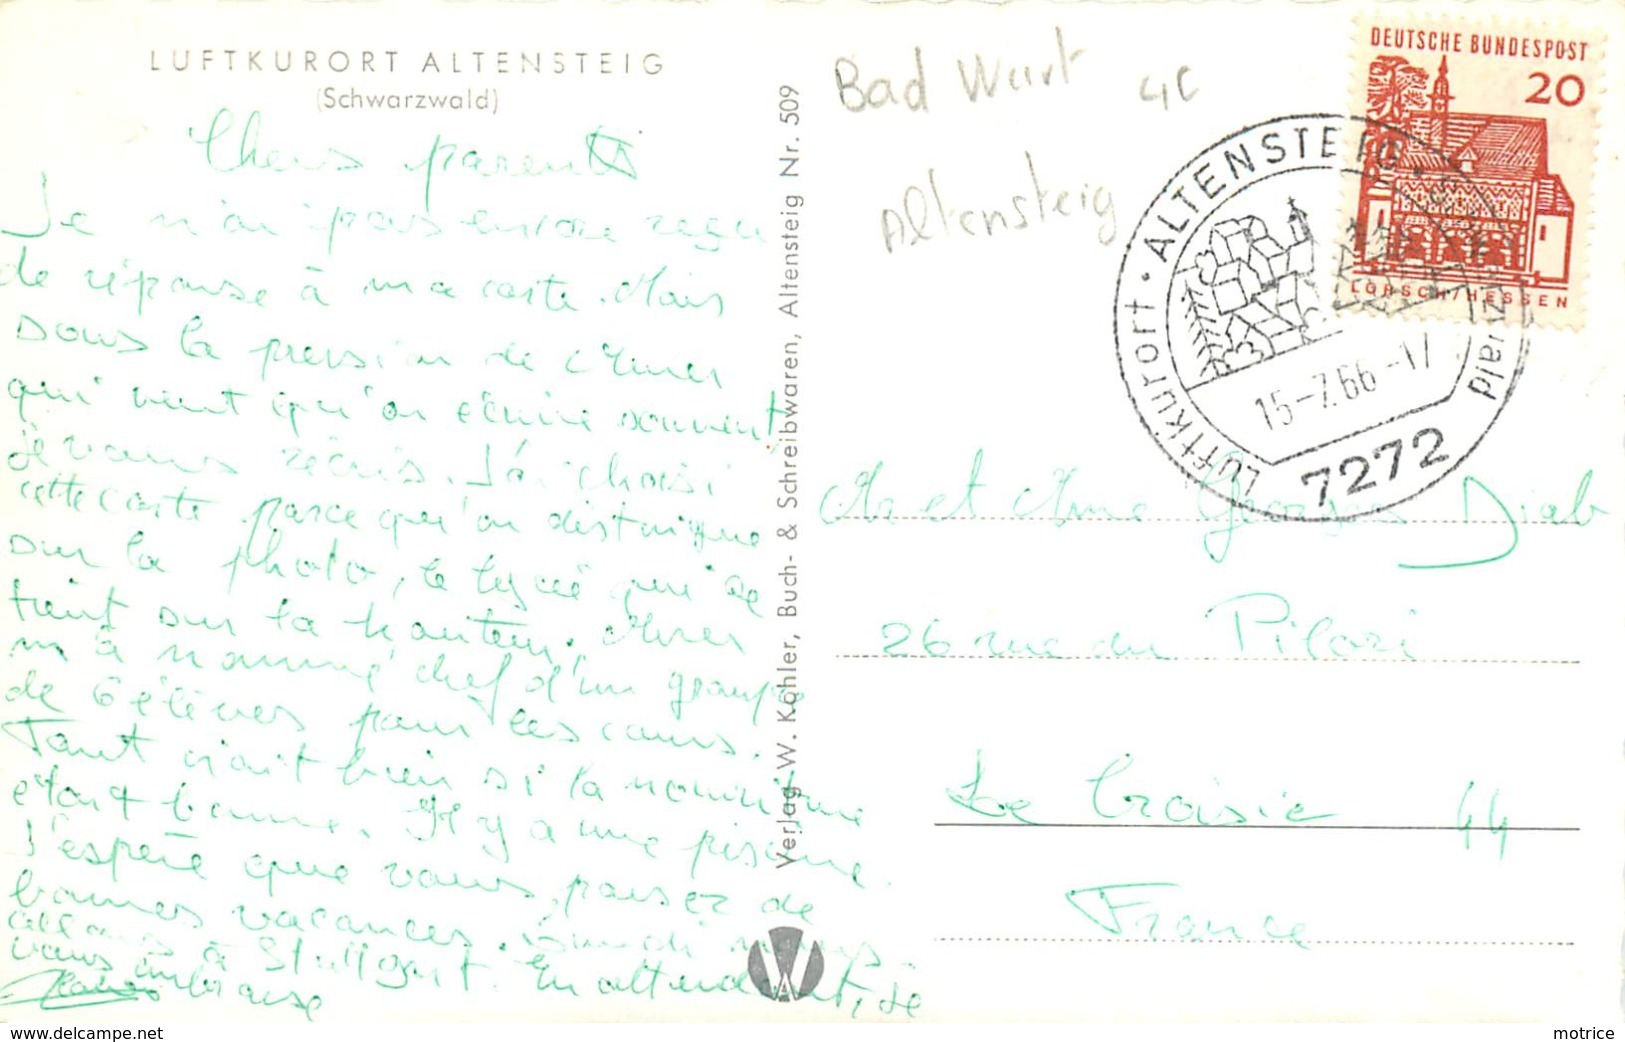 LUFTKURORT ALTENSTEIG
(Schwarzwald)
Chers parents
Je n'ai pas encore reçu
de réponse à ma carte. Mais
sous la pression de
qui veut qu'on écrive souvent
je vous réécris. J'ai choisi
cette carte parce qu'on distingue
sur la photo, le lycée qui se
tient sur la hauteur.
m'a nommé chef d'un groupe
de 6 élèves pour les cours.
Tout irait bien si la nourriture
était bonne. Il y a une piscine.
J'espère que vous passez de
bonnes vacances. nous
allons à Stuttgart. En attendant, je
vous embrasse
Verlag W. Köhler, Buch- & Schreibwaren, Altensteig Nr. 509
Bad Wurt 4C
Altensteig
DEUTSCHE BUNDESPOST
20
LORSCH/HESSEN
Luftkurort · ALTENSTEIG · Schwarzwald
15-7.66-17
7272
Mr et Mme Georges Diab
26 rue du Pilori
Le Croisic 44
France
www.delcampe.net
motrice